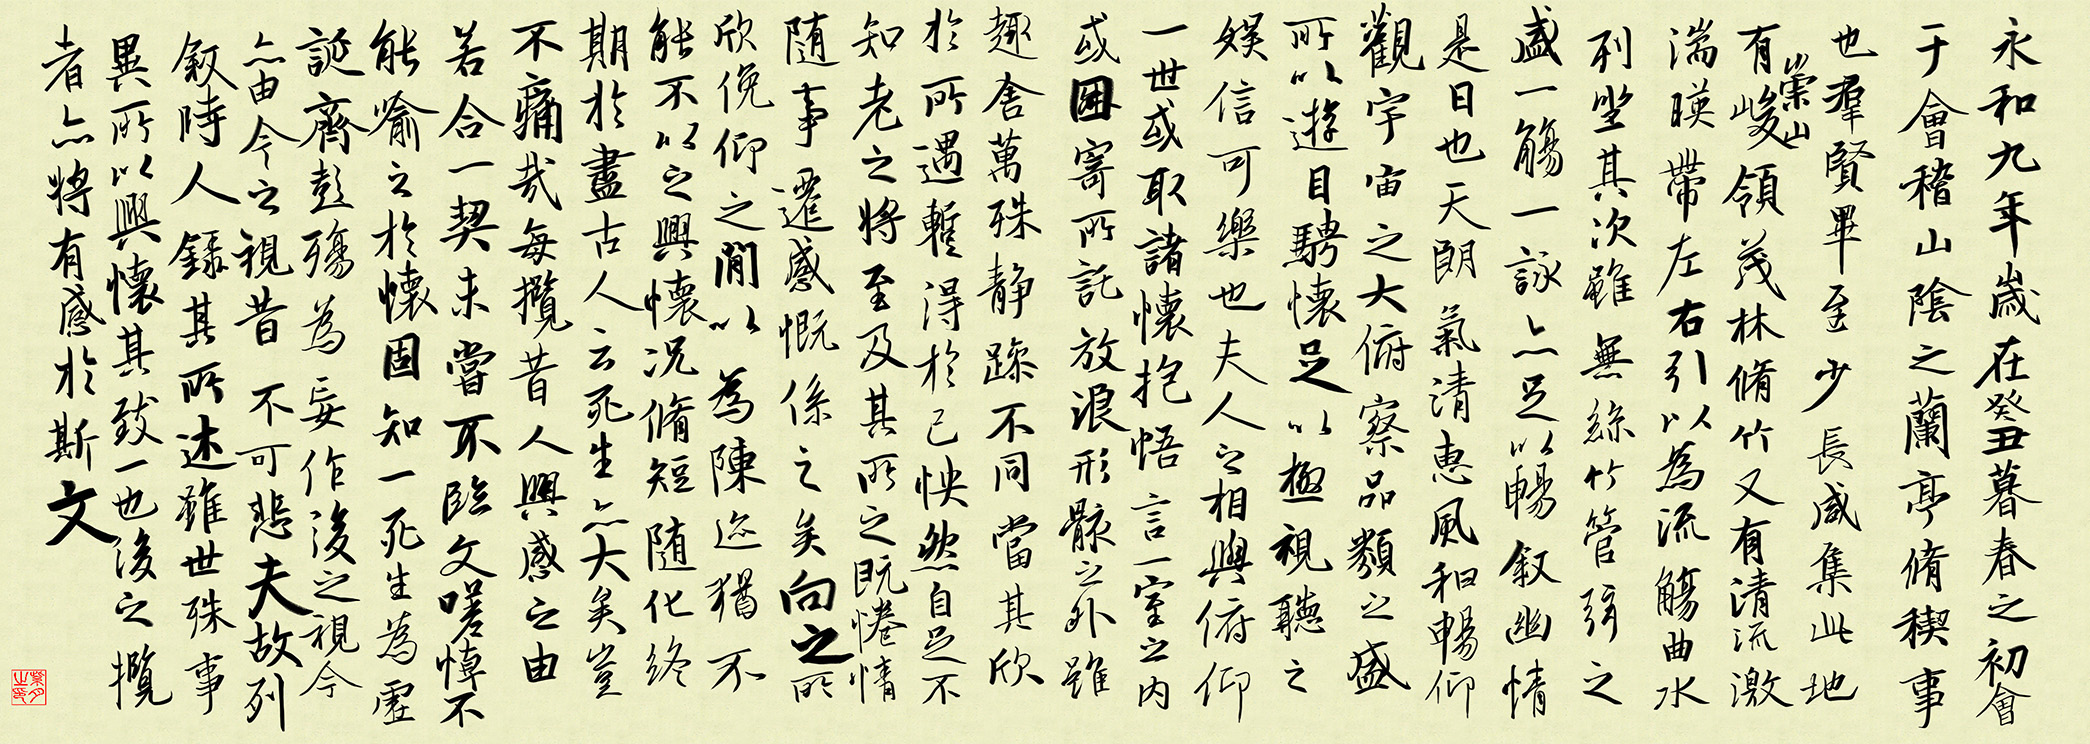 永和九年歲在癸丑暮春之初會
于會稽山陰之蘭亭脩稧事
也羣賢畢至少長咸集此地
有崇山峻領茂林脩竹又有清流激
湍暎帶左右引以為流觴曲水
列坐其次雖無絲竹管弦之
盛一觴一詠亦足以暢敘幽情
是日也天朗氣清惠風和暢仰
觀宇宙之大俯察品類之盛
所以遊目騁懷足以極視聽之
娛信可樂也夫人之相與俯仰
一世或取諸懷抱悟言一室之內
或因寄所託放浪形骸之外雖
趣舍萬殊靜躁不同當其欣
於所遇暫得於己怏然自足不
知老之將至及其所之既惓情
隨事遷感慨係之矣向之所
欣俛仰之閒以為陳迹猶不
能不以之興懷況脩短隨化終
期於盡古人云死生亦大矣豈
不痛哉每攬昔人興感之由
若合一契未嘗不臨文嗟悼不
能喻之於懷固知一死生為虛
誕齊彭殤為妄作後之視今
亦由今之視昔不可悲夫故列
敘時人錄其所述雖世殊事
異所以興懷其致一也後之攬
者亦將有感於斯文